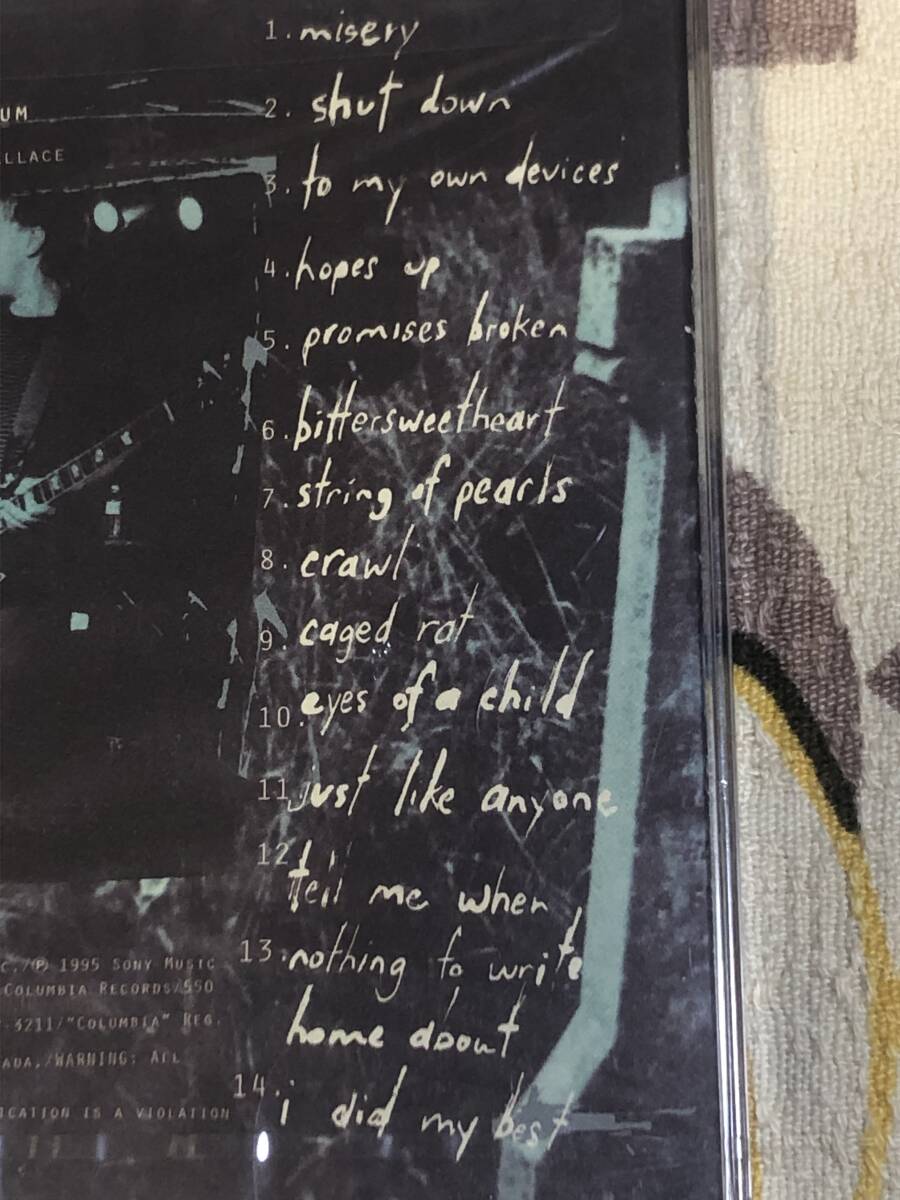 UM
LLACE
1. misery
2. shut down
3. to my own devices
4. hopes up
5. promises broken
6. bittersweetheart
7. string of pearls
8. crawl
9. caged rat
10. eyes of a child
11. just like anyone
12.
tell me when
13. nothing to write
home about
14.
i did my best
C./℗ 1995 SONY MUSIC
COLUMBIA RECORDS/550
-3211/"COLUMBIA" REG.
ADA./WARNING: ALL
ICATION IS A VIOLATION